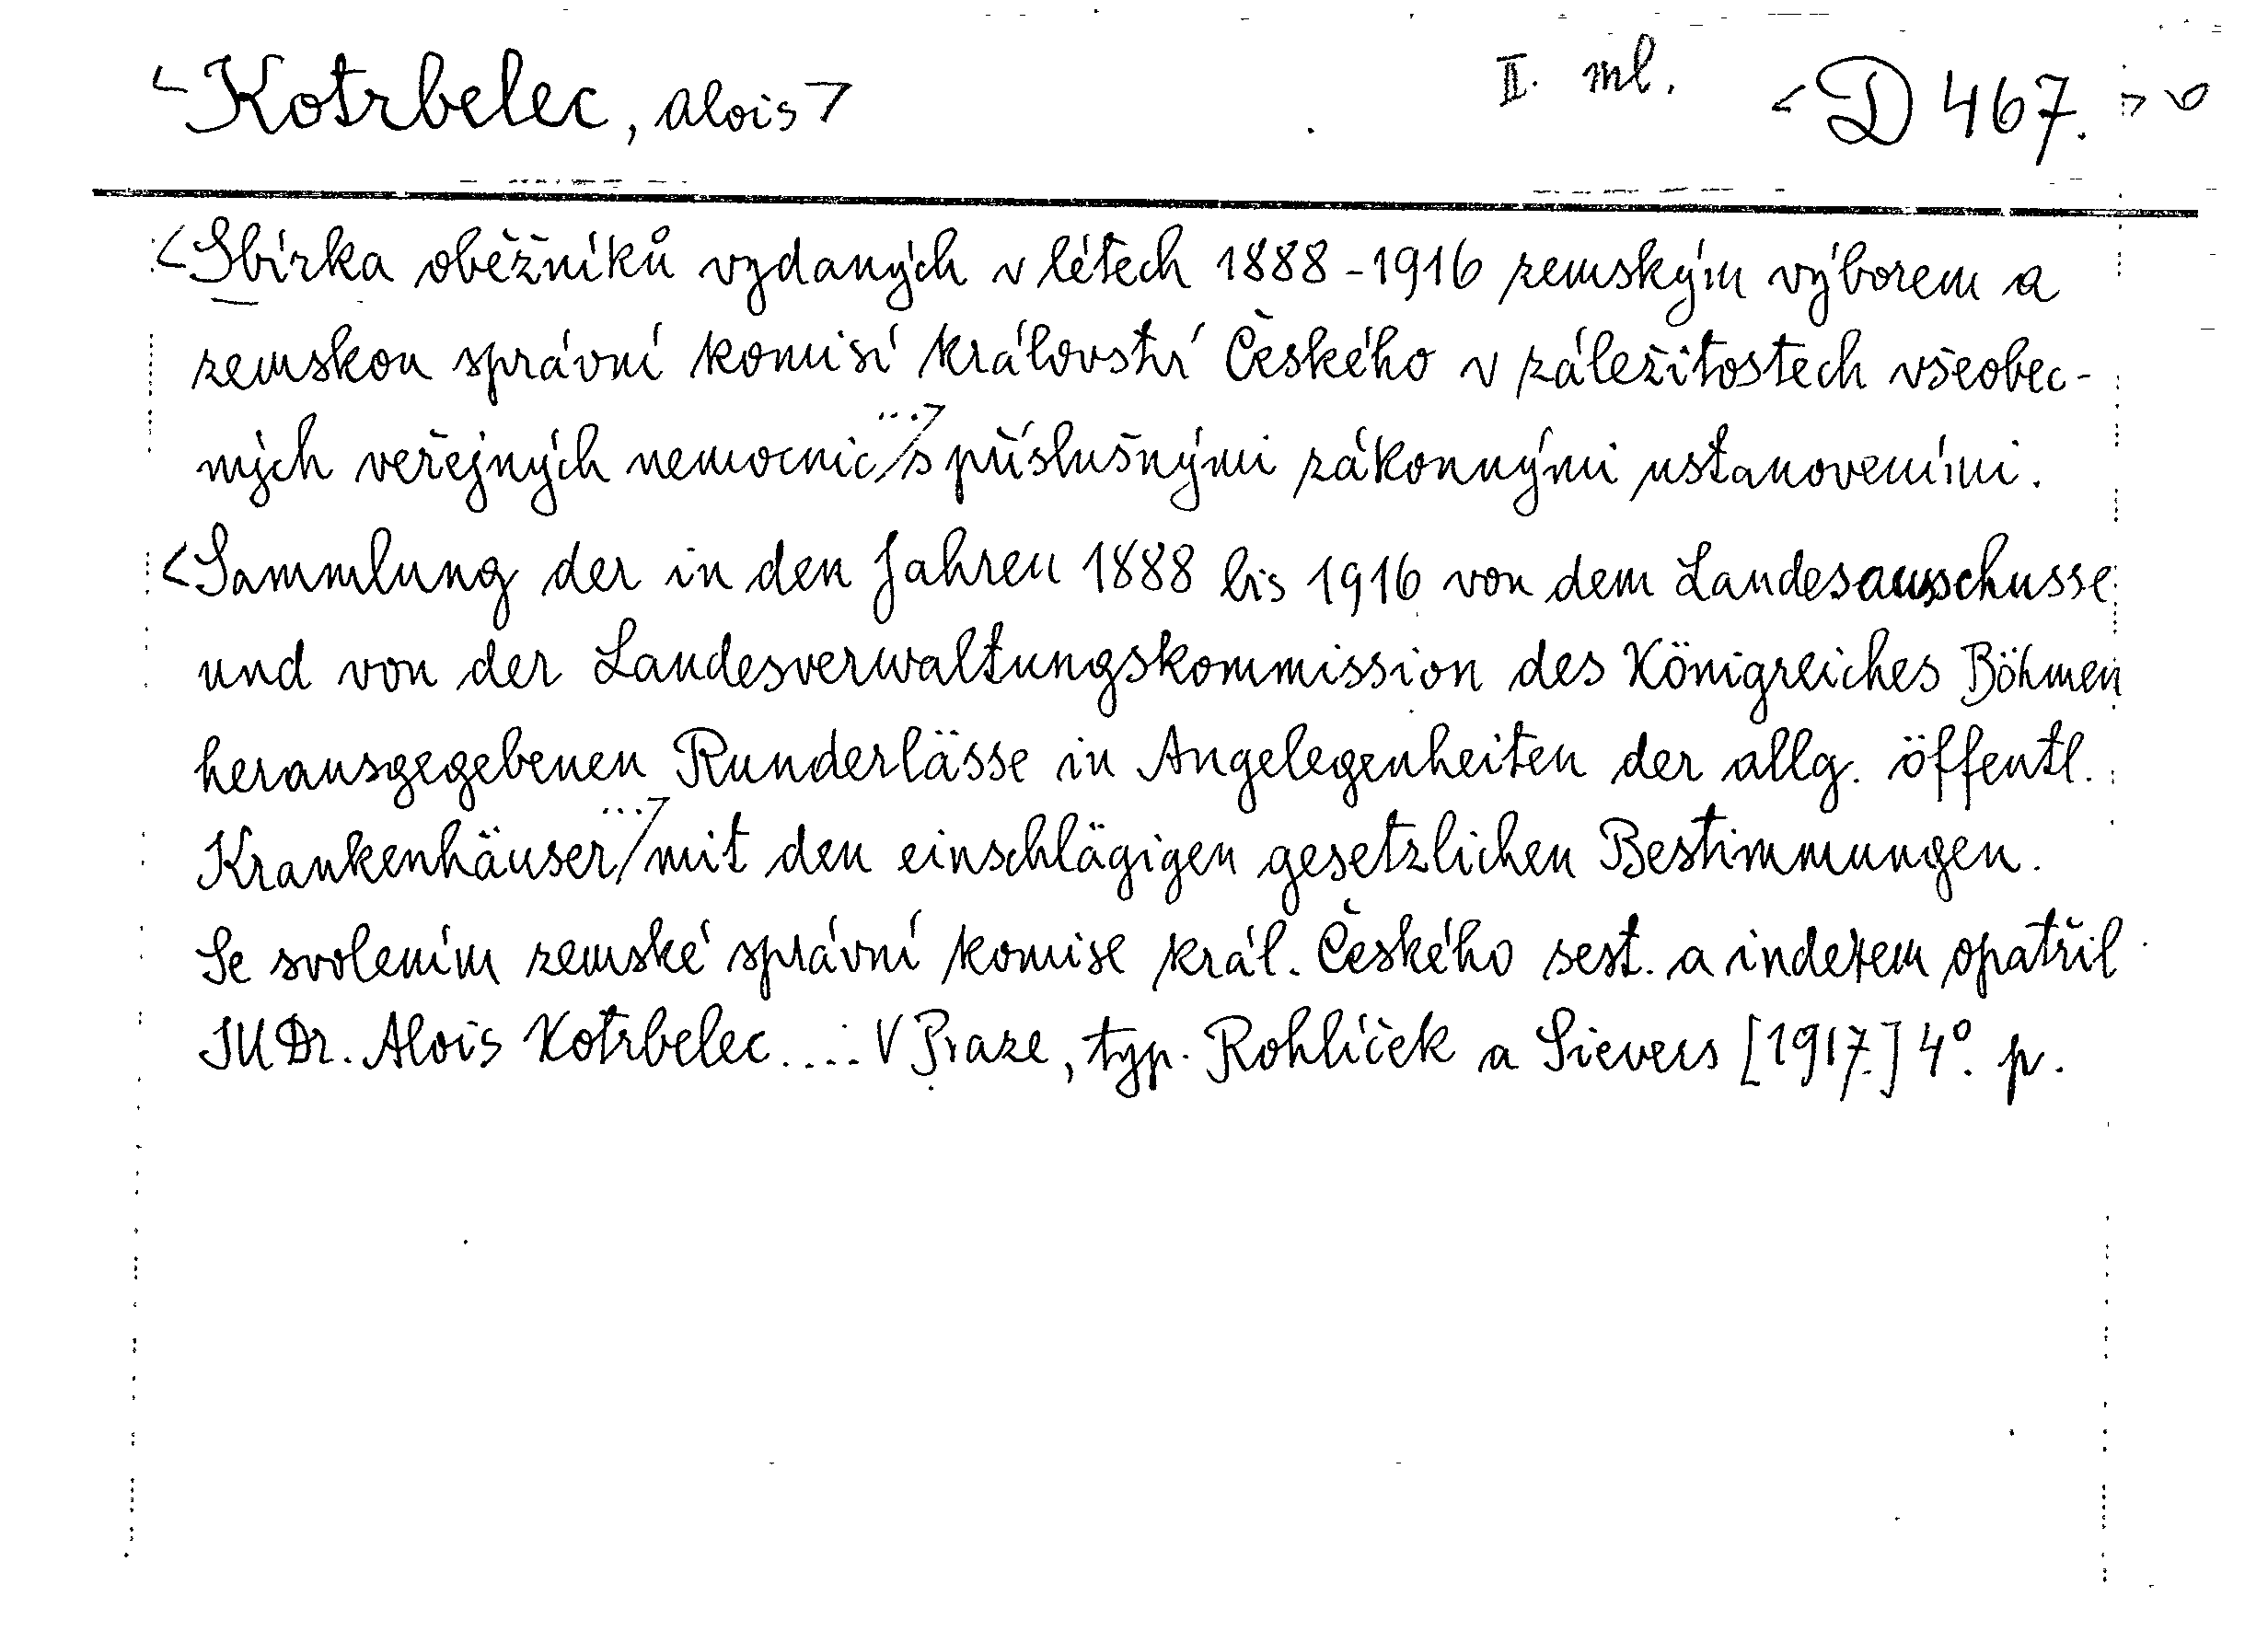 <Kotrbelec, Alois> II. ml. <D 467.>
<Sbírka oběžníků vydaných v létech 1888-1916 zemským výborem a
zemskou správní komisí království Českého v záležitostech všeobec-
ných veřejných nemocnic...>/s příslušnými zákonnými ustanoveními.
<Sammlung der in den Jahren 1888 bis 1916 von dem Landesausschusse
und von der Landesverwaltungskommission des Königreiches Böhmen
herausgegebenen Runderlässe in Angelegenheiten der allg. öffentl.
Krankenhäuser...>/mit den einschlägigen gesetzlichen Bestimmungen.
Se svolením zemské správní komise král. Českého sest. a indexem opatřil
JUDr. Alois Kotrbelec.... V Praze, typ. Rohlíček a Sievers [1917.] 4°. p.